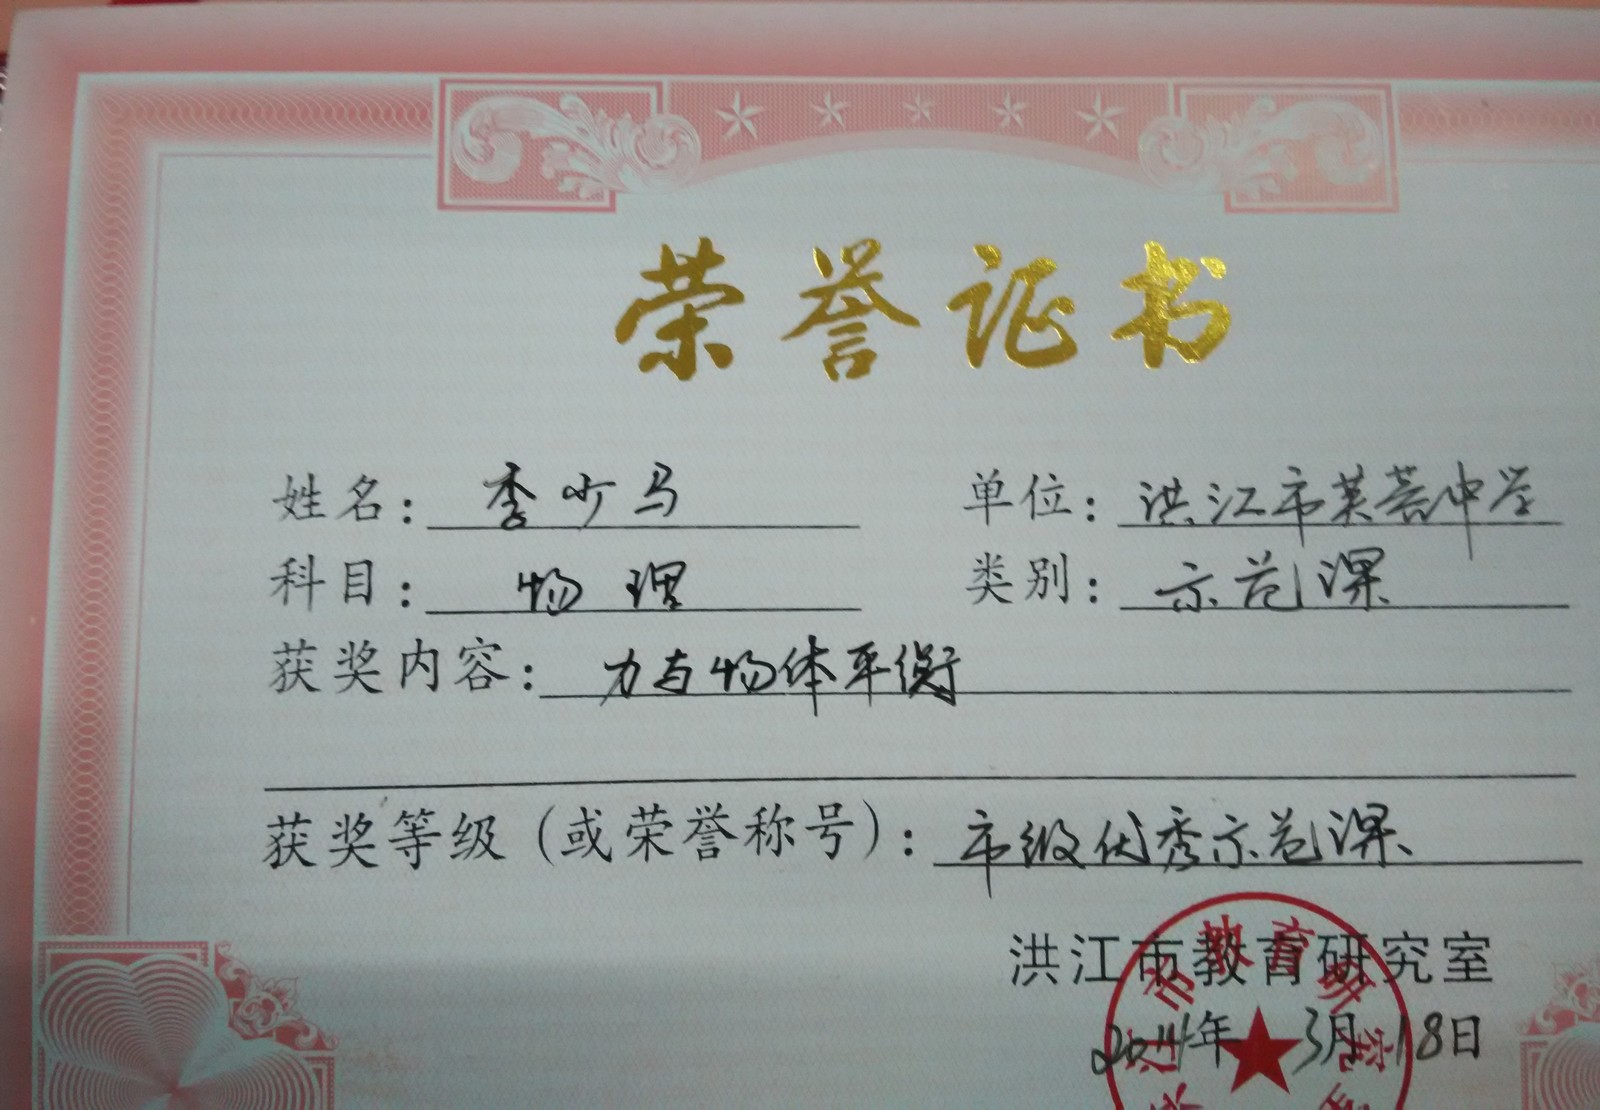 荣誉证书
姓名：李少马 单位：洪江市芙蓉中学
科目：物理 类别：示范课
获奖内容：力与物体平衡
获奖等级（或荣誉称号）：市级优秀示范课
洪江市教育研究室
2014年3月18日